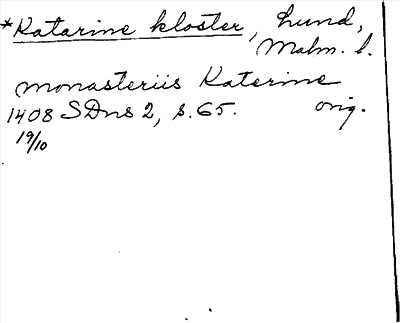 *Katarine kloster, Lund,
Malm. l.
monasteriis Katerine
1408 SDns 2, s. 65. orig.
19/10